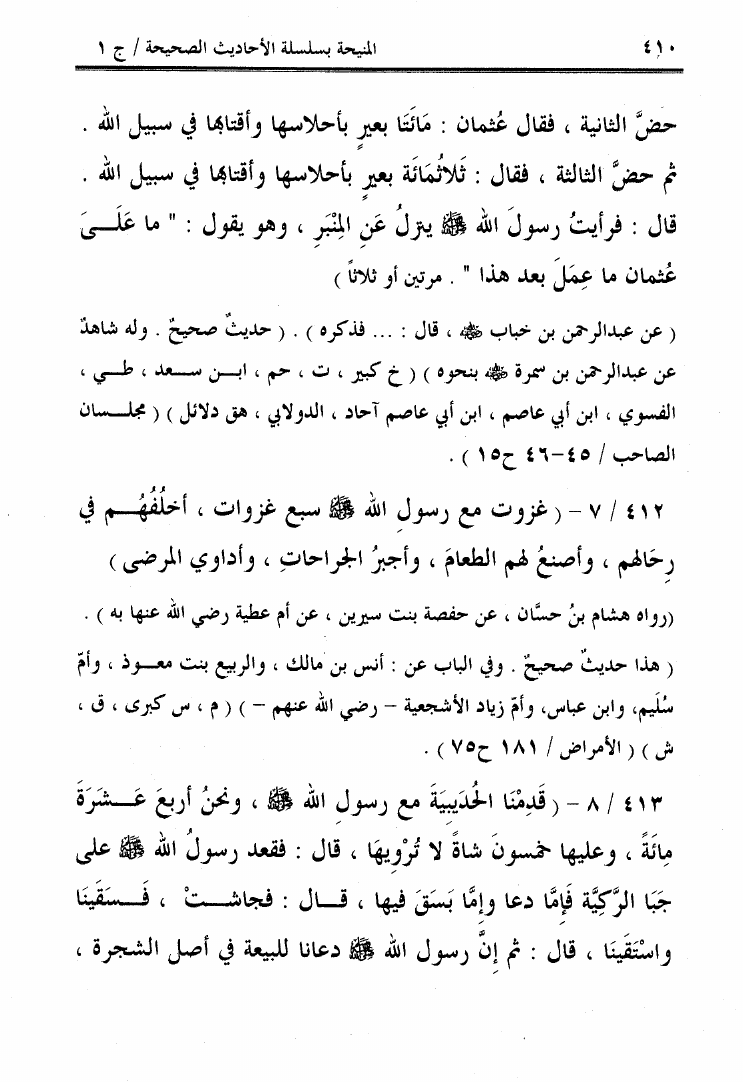 ٤١٠ المنيحة بسلسلة الأحاديث الصحيحة / ج ١
حضَّ الثانية ، فقال عُثمان : مَائَتَا بعيرٍ بأحلاسها وأقتابها في سبيل الله .
ثم حضَّ الثالثة ، فقال : ثَلاثُمَائَة بعيرٍ بأحلاسها وأقتابها في سبيل الله .
قال : فرأيتُ رسولَ الله ﷺ ينزلُ عَنِ المِنْبَرِ ، وهو يقول : " ما عَلَــى
عُثمان ما عِمَلَ بعد هذا " . مرتين أو ثلاثاً )
( عن عبدالرحمن بن خباب ﷺ ، قال : ... فذكره ) . ( حديثٌ صحيحٌ . وله شاهدٌ
عن عبدالرحمن بن سمرة ﷺ بنحوه ) ( خ كبير ، ت ، حم ، ابــن ســعد ، طــي ،
الفسوي ، ابن أبي عاصم ، ابن أبي عاصم آحاد ، الدولابي ، هق دلائل ) ( مجلــسان
الصاحب / ٤٥-٤٦ ح١٥ ) .
٤١٢ / ٧ - ( غزوت مع رسولِ الله ﷺ سبع غزوات ، أخلُفُهُــم في
رِحَالهم ، وأصنعُ لهم الطعامَ ، وأجبرُ الجراحاتِ ، وأداوي المرضى )
(رواه هشام بنُ حسَّان ، عن حفصة بنت سيرين ، عن أم عطية رضي الله عنها به ) .
( هذا حديثٌ صحيحٌ . وفي الباب عن : أنس بن مالك ، والربيع بنت معــوذ ، وأمّ
سُلَيم، وابن عباس، وأمّ زياد الأشجعية - رضي الله عنهم - ) ( م ، س كبرى ، ق ،
ش ) ( الأمراض / ١٨١ ح٧٥ ) .
٤١٣ / ٨ - ( قَدِمْنَا الحُدَيبِيَةَ مع رسولِ الله ﷺ ، ونحنُ أربعَ عَــشَرَةَ
مِائَةً ، وعليها خمسونَ شاةً لا تُرْوِيهَا ، قال : فقعد رسولُ الله ﷺ على
جَبَا الرَّكِيَّة فَإِمَّا دعا وإمَّا بَسَقَ فيها ، قــال : فجاشــتْ ، فَــسَقَينَا
واسْتَقَينَا ، قال : ثم إنَّ رسول الله ﷺ دعانا للبيعة في أصل الشجرة ،